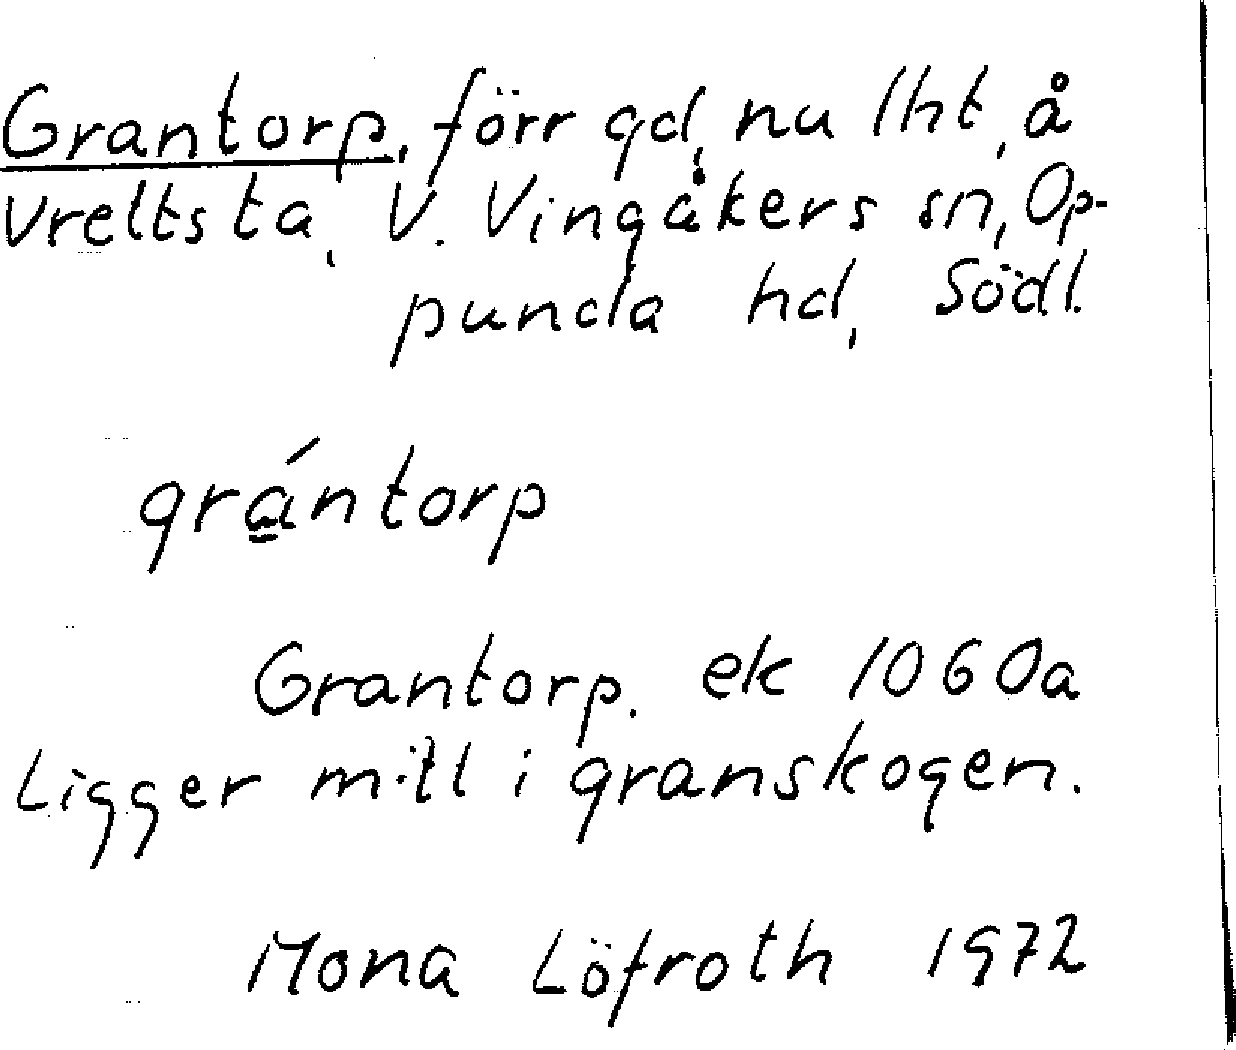 Grantorp, förr gd, nu lht, å
Vreltsta, V. Vingåkers sn, Op-
punda hd, Södl.
grántorp
Grantorp. ek 1060a
Ligger mitt i granskogen.
Mona Löfroth 1972